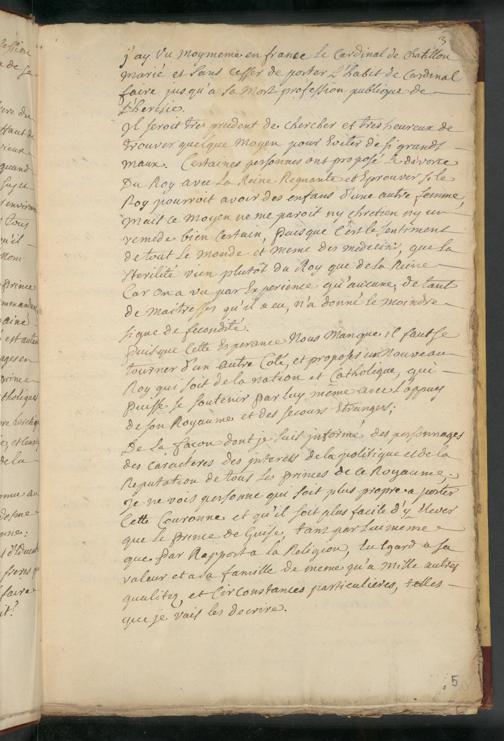 3
j'ay Vu moymeme en france le Cardinal de Chatillon
marié et sans cesser de porter L'habit de Cardinal
faire jusqu'a sa Mort profession publique de
L'heresie.
Il seroit tres prudent de chercher et tres heureux de
trouver quelque Moyen pour Eviter de si grands
maux. Certaines personnes ont proposé le divorce
Du Roy avec La Reine Regnante et Eprouver si le
Roy pourroit avoir des enfans d'une autre femme,
Mais ce Moyen ne me paroit ny chretien ny un
remede bien Certain, puisque C'est le sentiment
de tout Le Monde et meme des medecins, que La
sterilité vien plutôt du Roy que de La Reine
Car On a vu par Experience qu'aucune, de tant
de maitresses qu'il a eu, n'a donné le moindre
signe de fecondité.
Puisque Cette Esperance Nous manque, il faut se
tourner d'un autre Coté, et proposer un Nouveau
Roy qui soit de La nation et Catholique, qui
puisse se soutenir par Luy même avec L'appuy
de son Royaume et des secours Etrangers;
De La façon dont je suis informé des personnages
des caracteres des interets de La politique et de La
Reputation de tous Les princes de ce Royaume,
je ne vois personne qui soit plus propre a porter
Cette Couronne et qu'il soit plus facile d'y Elever
que Le prince de Guise, tant par Lui meme
que par Rapport a La Religion, Eu Egard a sa
valeur et a sa famille de meme qu'a Mille autres
qualités, et Circonstances particulieres, telles
que je vais les decrire.
5